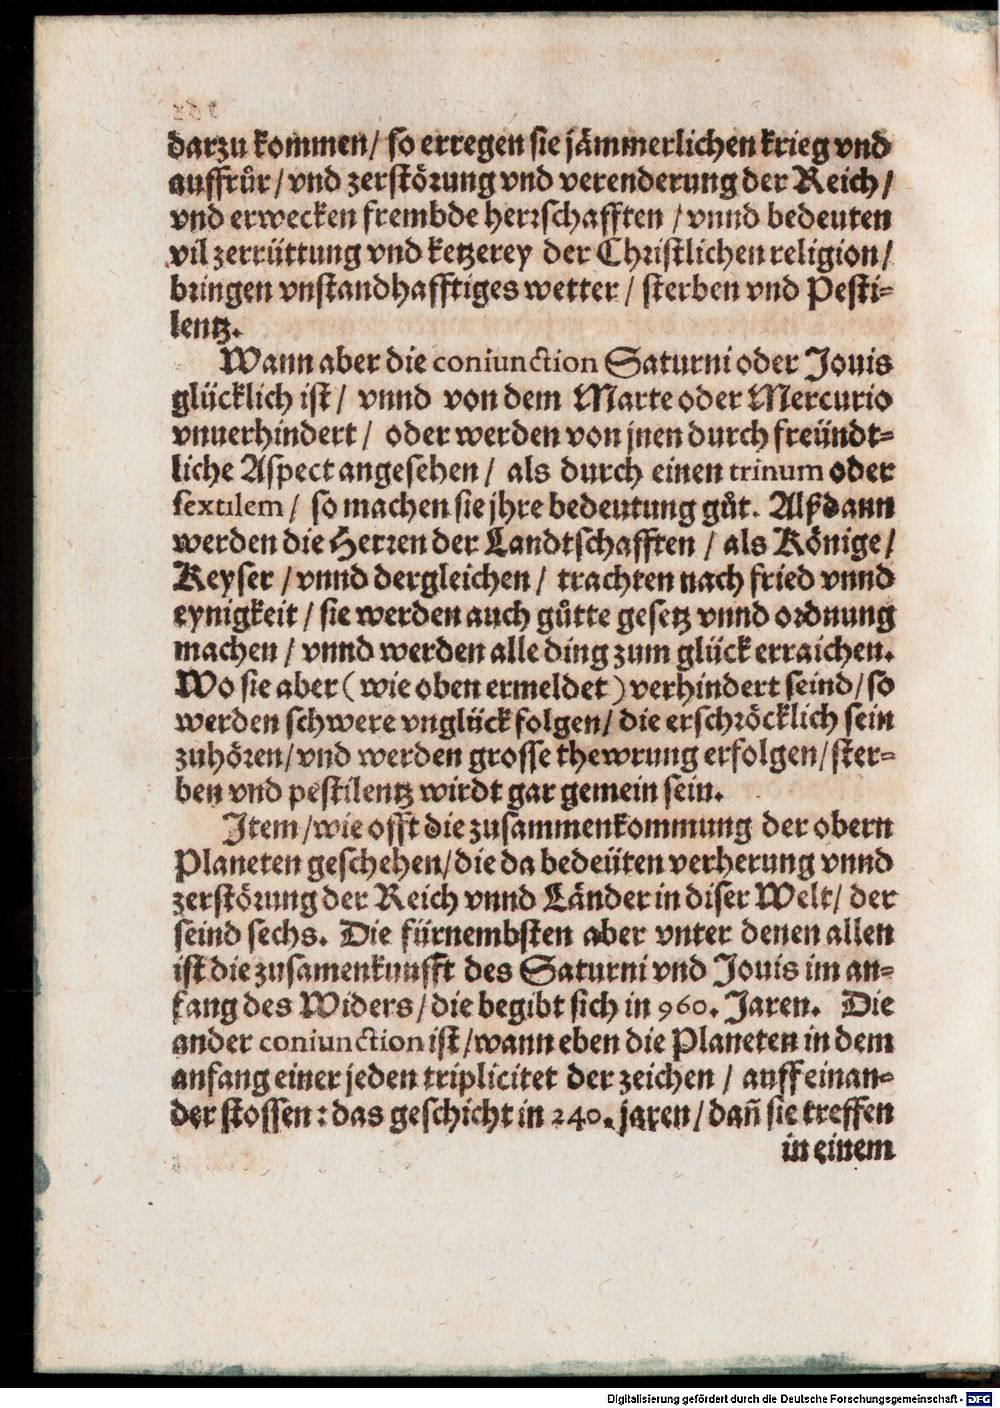 darzu kommen/ so erregen sie jämmerlichen krieg vnd
auffrůr/ vnd zerstörung vnd verenderung der Reich/
vnd erwecken frembde herrschafften / vnnd bedeuten
vil zerrüttung vnd ketzerey der Christlichen religion/
bringen vnstandhafftiges wetter / sterben vnd Pesti⸗
lentz.
Wann aber die coniunction Saturni oder Jouis
glücklich ist/ vnnd von dem Marte oder Mercurio
vnuerhindert/ oder werden von jnen durch freündt⸗
liche Aspect angesehen/ als durch einen trinum oder
sextilem/ so machen sie jhre bedeutung gůt. Alßdann
werden die Herren der Landtschafften / als Könige/
Keyser / vnnd dergleichen/ trachten nach fried vnnd
eynigkeit / sie werden auch gůtte gesetz vnnd ordnung
machen / vnnd werden alle ding zum glück erraichen.
Wo sie aber ( wie oben ermeldet ) verhindert seind/ so
werden schwere vnglück folgen/ die erschröcklich sein
zuhören/ vnd werden grosse thewrung erfolgen/ ster⸗
ben vnd pestilentz wirdt gar gemein sein.
Item/ wie offt die zusammenkommung der obern
Planeten geschehen/ die da bedeüten verherung vnnd
zerstörung der Reich vnnd Länder in diser Welt/ der
seind sechs. Die fürnembsten aber vnter denen allen
ist die zusamenkunfft des Saturni vnd Jouis im an⸗
fang des Widers/ die begibt sich in 960. Jaren. Die
ander coniunction ist/ wann eben die Planeten in dem
anfang einer jeden triplicitet der zeichen / auff einan⸗
der stossen: das geschicht in 240. jaren/ dañ sie treffen
in einem
Digitalisierung gefördert durch die Deutsche Forschungsgemeinschaft - DFG